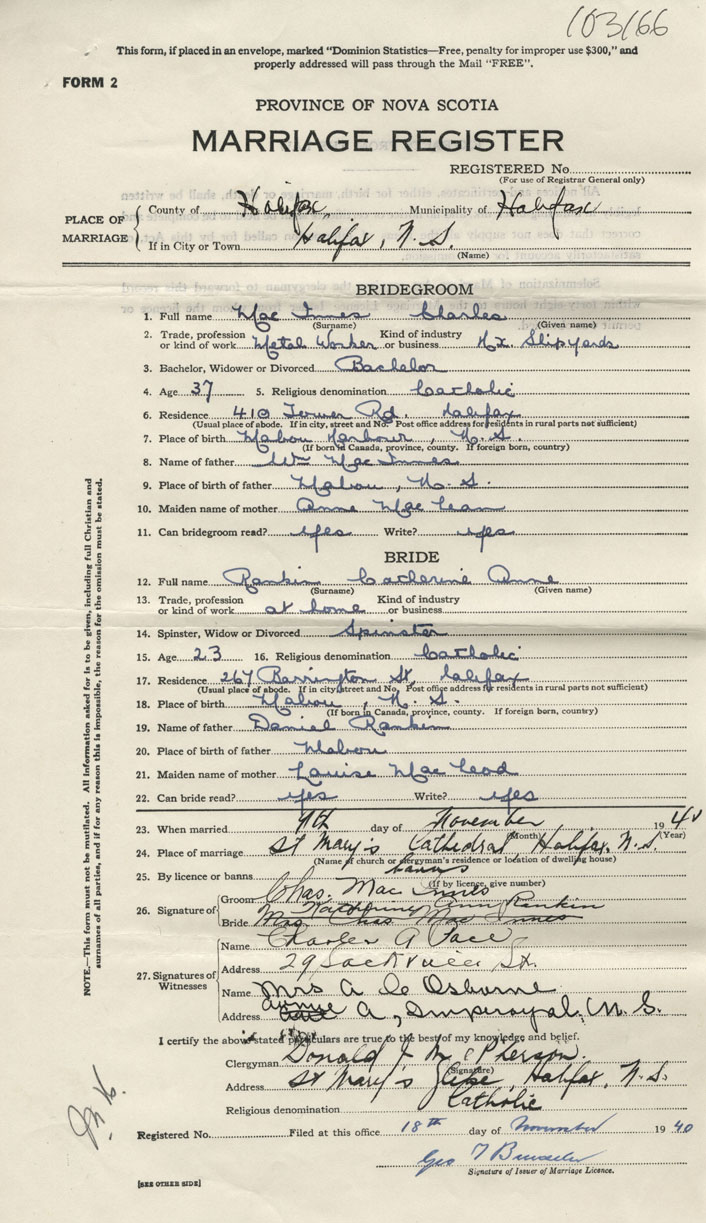 103166
This form, if placed in an envelope, marked "Dominion Statistics—Free, penalty for improper use $300," and
properly addressed will pass through the Mail "FREE".
FORM 2
PROVINCE OF NOVA SCOTIA
MARRIAGE REGISTER
REGISTERED No.
(For use of Registrar General only)
PLACE OF MARRIAGE
County of Halifax, Municipality of Halifax
If in City or Town Halifax, N.S.
(Name)
BRIDEGROOM
1. Full name Mac Innes Charles
(Surname) (Given name)
2. Trade, profession or kind of work Metal Worker Kind of industry or business Hx. Shipyards
3. Bachelor, Widower or Divorced Bachelor
4. Age 37 5. Religious denomination Catholic
6. Residence 410 Rd. Halifax
(Usual place of abode. If in city, street and No. Post office address for residents in rural parts not sufficient)
7. Place of birth Mabou Harbour, N.S.
(If born in Canada, province, county. If foreign born, country)
8. Name of father Wm Mac Innes
9. Place of birth of father Mabou, N.S.
10. Maiden name of mother Anne Mac Lean
11. Can bridegroom read? yes Write? yes
BRIDE
12. Full name Rankin Catherine Anne
(Surname) (Given name)
13. Trade, profession or kind of work at home Kind of industry or business
14. Spinster, Widow or Divorced Spinster
15. Age 23 16. Religious denomination Catholic
17. Residence 267 Barrington St. Halifax
(Usual place of abode. If in city street and No. Post office address for residents in rural parts not sufficient)
18. Place of birth Mabou, N.S.
(If born in Canada, province, county. If foreign born, country)
19. Name of father Daniel Rankin
20. Place of birth of father Mabou
21. Maiden name of mother Louise Mac Leod
22. Can bride read? yes Write? yes
23. When married 9th day of November 1940
(Month) (Year)
24. Place of marriage St Mary's Cathedral, Halifax, N.S.
(Name of church or clergyman's residence or location of dwelling house)
25. By licence or banns banns
(If by licence, give number)
26. Signature of
Groom Chas. Mac Innes
Katherine Ann Rankin
Bride Mrs. Chas Mac Innes
27. Signatures of Witnesses
Name Charles A
Address 29 Sackville St.
Name Mrs A Osborne
Address A, Imperoyal, N.S.
I certify the above stated particulars are true to the best of my knowledge and belief.
Clergyman Donald J. McPherson.
(Signature)
Address St Mary's Glebe, Halifax, N.S.
Religious denomination Catholic
Registered No. Filed at this office 18th day of November 1940
Geo
Signature of Issuer of Marriage Licence.
[SEE OTHER SIDE]
NOTE.—This form must not be mutilated. All information asked for is to be given, including full Christian and
surnames of all parties, and if for any reason this is impossible, the reason for the omission must be stated.